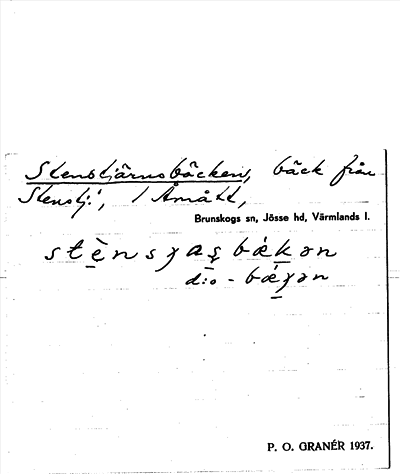 Stenstjärnsbäcken, bäck från
Stenstj:, i Åmått,
Brunskogs sn, Jösse hd, Värmlands l.
stè̱nsɟas̱bǽḵən
d:o - bǽɟ̱ən
P. O. GRANÉR 1937.